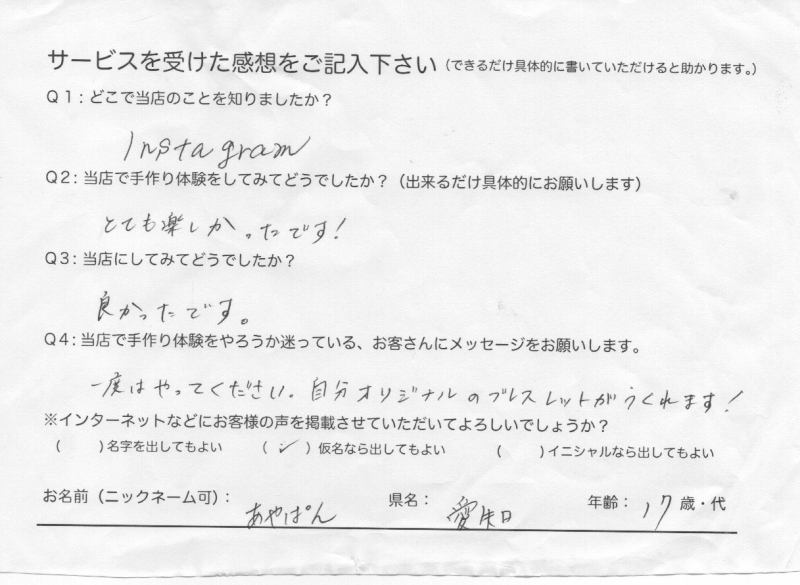 サービスを受けた感想をご記入下さい（できるだけ具体的に書いていただけると助かります。）
Q1：どこで当店のことを知りましたか？
Instagram
Q2：当店で手作り体験をしてみてどうでしたか？（出来るだけ具体的にお願いします）
とても楽しかったです！
Q3：当店にしてみてどうでしたか？
良かったです。
Q4：当店で手作り体験をやろうか迷っている、お客さんにメッセージをお願いします。
一度はやってください。自分オリジナルのブレスレットがつくれます！
※インターネットなどにお客様の声を掲載させていただいてよろしいでしょうか？
（　　）名字を出してもよい　（✓）仮名なら出してもよい　（　　）イニシャルなら出してもよい
お名前（ニックネーム可）：あやぱん　県名：愛知　年齢：17歳・代